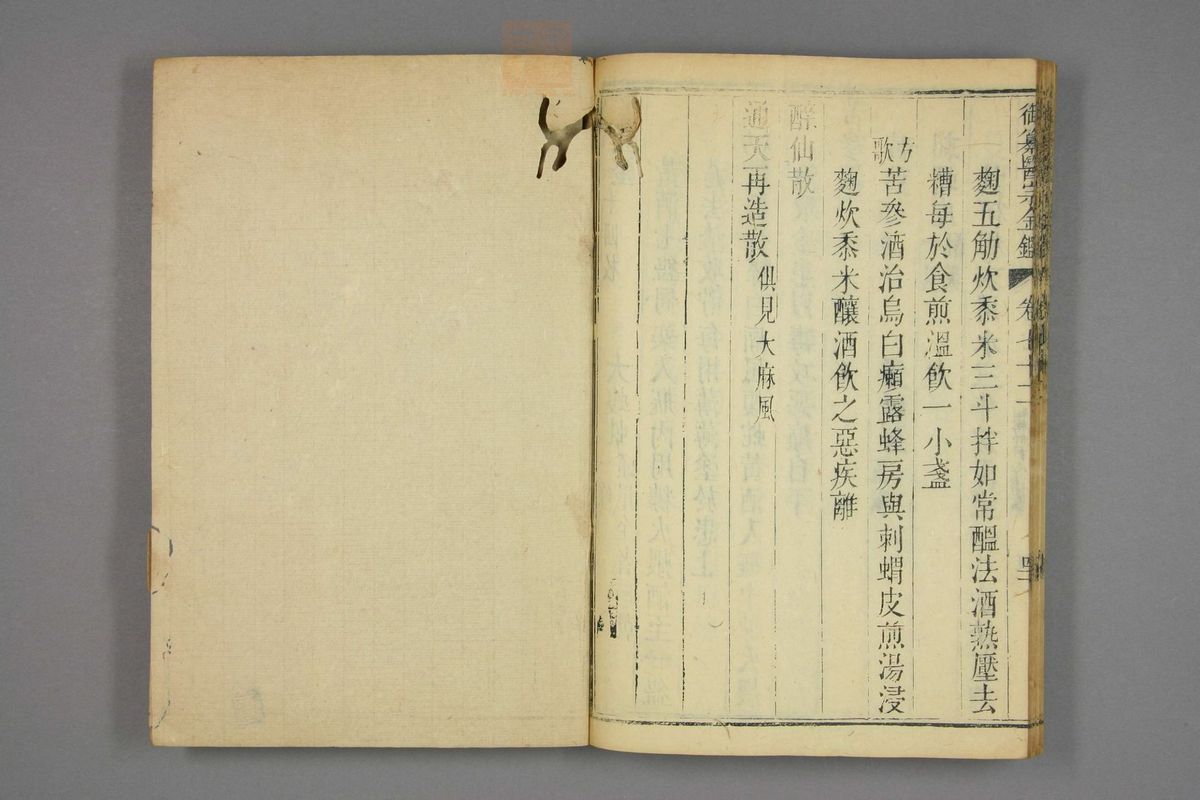 御纂醫宗金鑑 卷七十二
麴五觔炊黍米三斗拌如常醞法酒熟壓去
糟每於食煎溫飲一小盞
方歌
苦參酒治烏白癩露蜂房與刺蝟皮煎湯浸
麴炊黍米釀酒飲之惡疾離
醉仙散
通天再造散 俱見大麻風